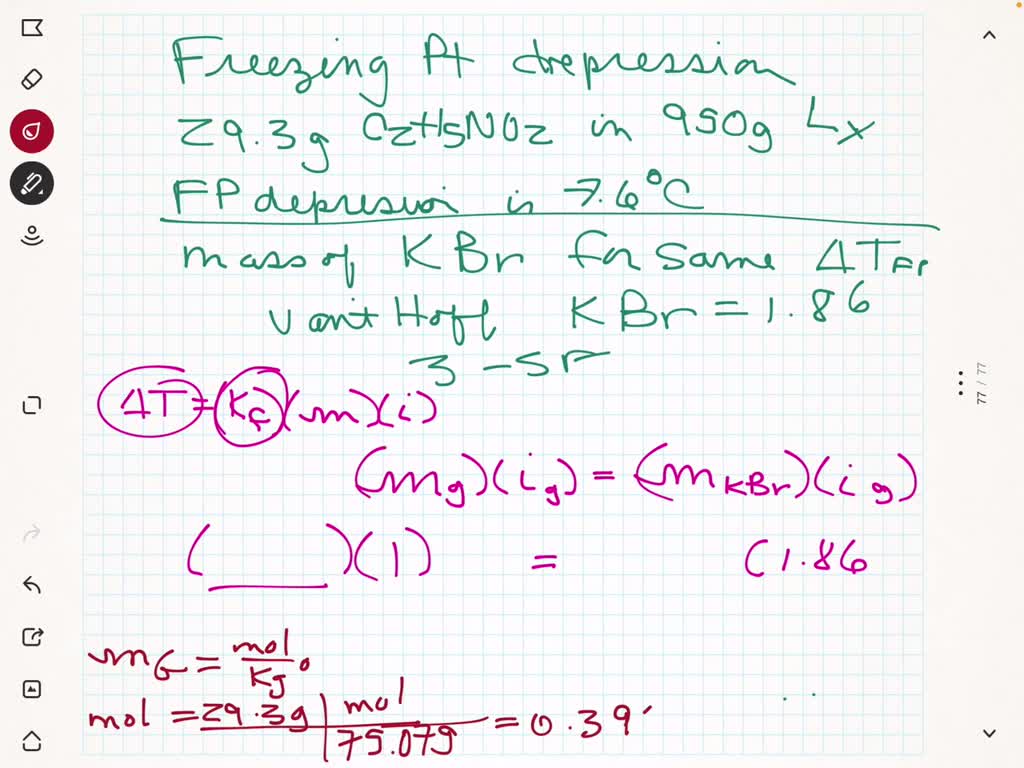 Freezing Pt depression
29.3g C2H5NO2 in 950g Lx
FP depression is 7.6°C
mass of KBr for same ΔTFP
van't Hoff KBr = 1.86
3-SF
ΔT = (Kf)(m)(i)
(mg)(ig) = (mKBr)(ig)
(____)(1) = (1.86
mG = mol/Kg
mol = 29.3g | mol / 75.07g = 0.39
77 / 77